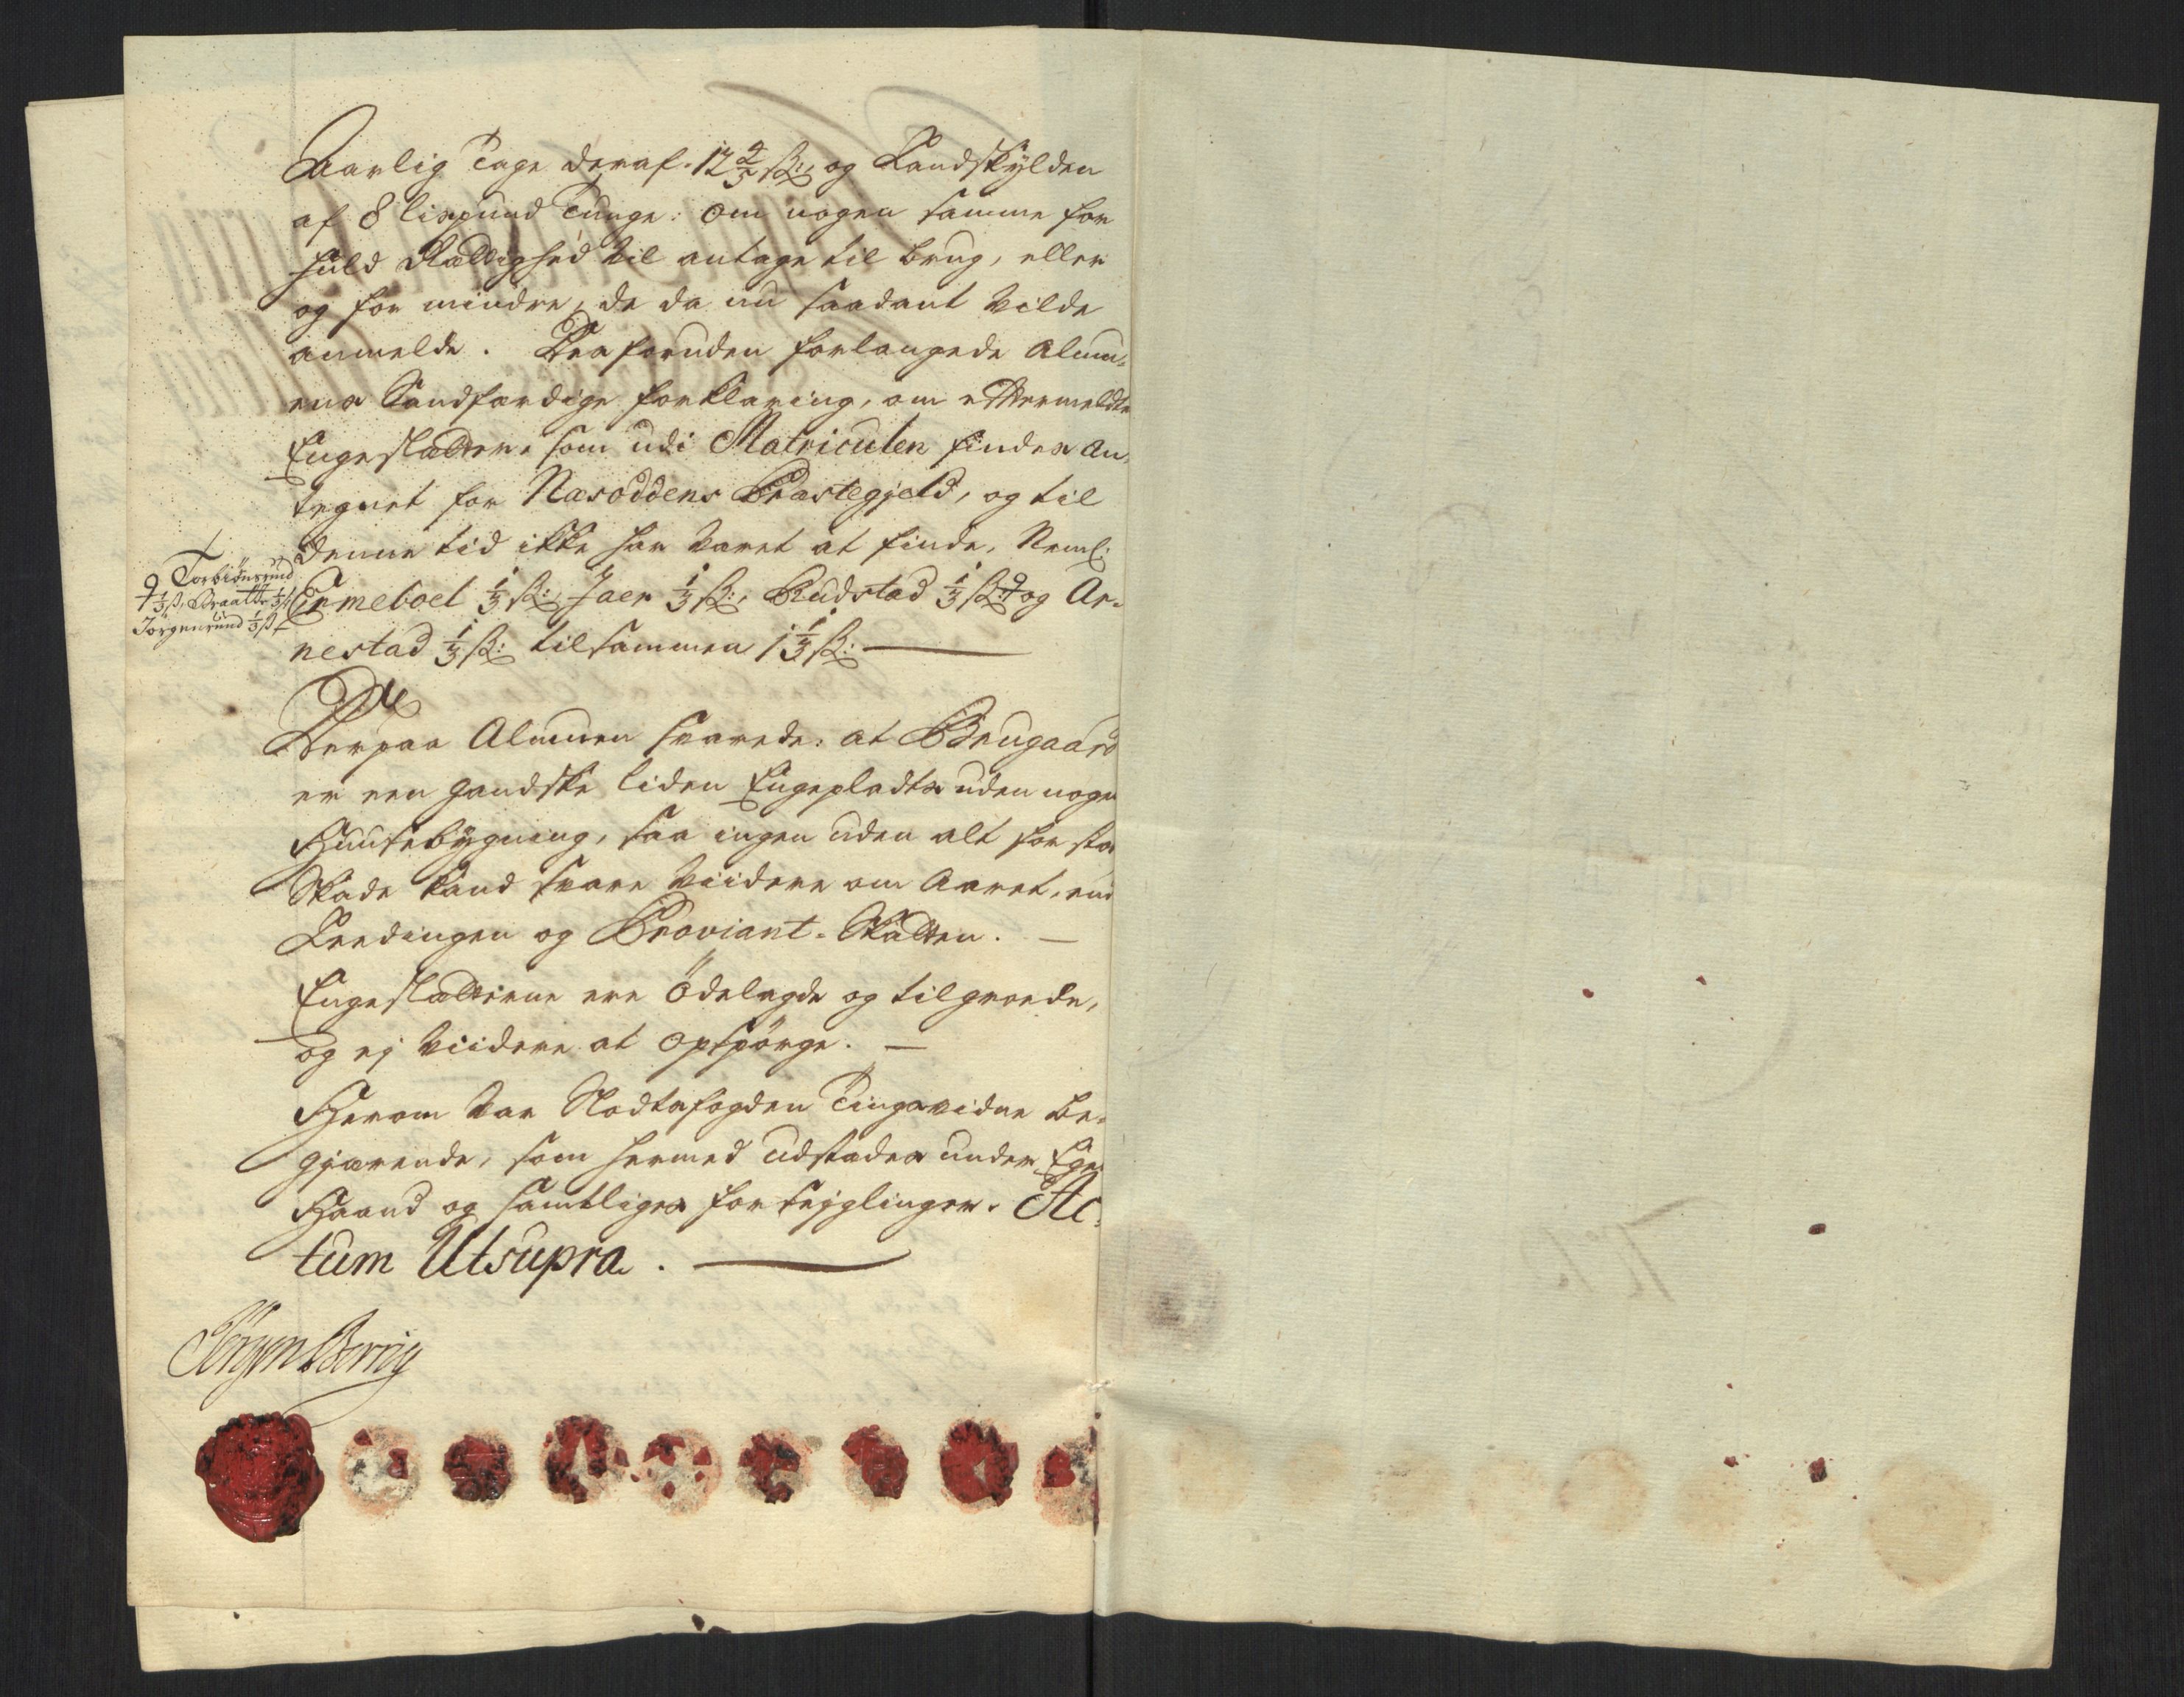 Aarlig Tage deraf 12 2/5 ß:, og Landskylden
af 8 lispund Tunge: om nogen samme for
fuld Rættighed vil antage til brug, eller
og for mindre, de da nu saadant vilde
anmelde. Desforuden forlangede Almu-
ens Sandfærdige forklaring, om eftermeldte
Engeslætter, som udi Matriculen findes an-
tegnet for Næsoddens Præstegjeld, og til
denne tid ikke har været at finde, Neml:
Emeboel 1/3 ß:, Jaer 1/3 ß:, Rudstad 1/3 ß: og Ar-
nestad 1/3 ß: tilsammen 1 1/3 ß:
Torbiönsrud
1/3 ß, Braatte 1/3 ß
Jörgensrud 1/3 ß
Derpaa Almuen svarede: at Brugaard
er een gandske liden Engeplads uden nogen
Huusebÿgning, saa ingen uden alt for stor
Skade kand svare viidere om Aaret, end
Leedingen og Proviant-Skatten. —
Engeslætterne ere Ödelagde og tilgroede,
og ej viidere at opspörge. —
Herom var Slodtsfogden Tingsvidne be-
gjærende, som hermed udstædes under Egen
Haand og samtliges forseyglinger. Ac-
tum Utsupra.
Jörgen Berrig